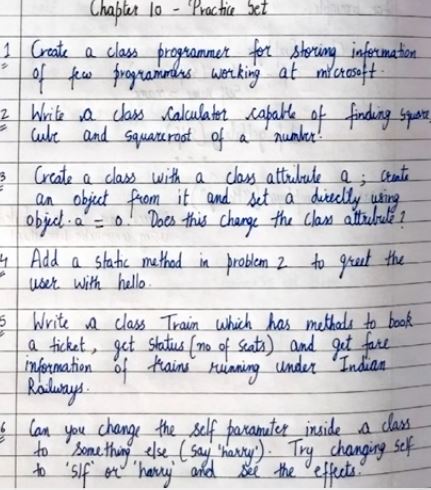 Chapter 10 - Practice Set
1 Create a class programmer for storing information
of few programmers working at microsoft.
2 Write a class Calculator capable of finding square,
cube and squareroot of a number.
3 Create a class with a class attribute a; create
an object from it and set a directly using
object.a = 0. Does this change the class attribute?
4 Add a static method in problem 2 to greet the
user with hello.
5 Write a class Train which has methods to book
a ticket, get status (no of seats) and get fare
information of trains running under Indian
Railways.
6 Can you change the self parameter inside a class
to something else (say 'harry'). Try changing self
to 'slf' or 'harry' and see the effects.